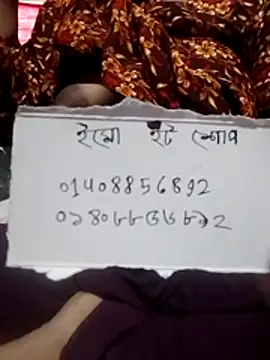 ইমো হট শোব
01408856892
০১৪০৮৮৫৬৮৯২